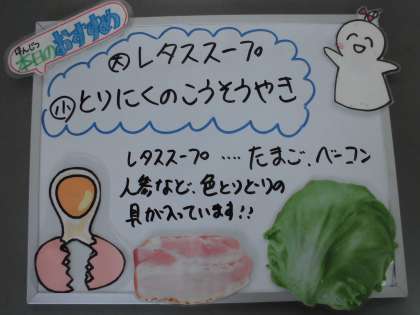 ほんじつ
本日のおすすめ
大 レタススープ
小 とりにくのこうそうやき
レタススープ ‥‥ たまご、ベーコン
人参など、色とりどりの
具が入っています!!